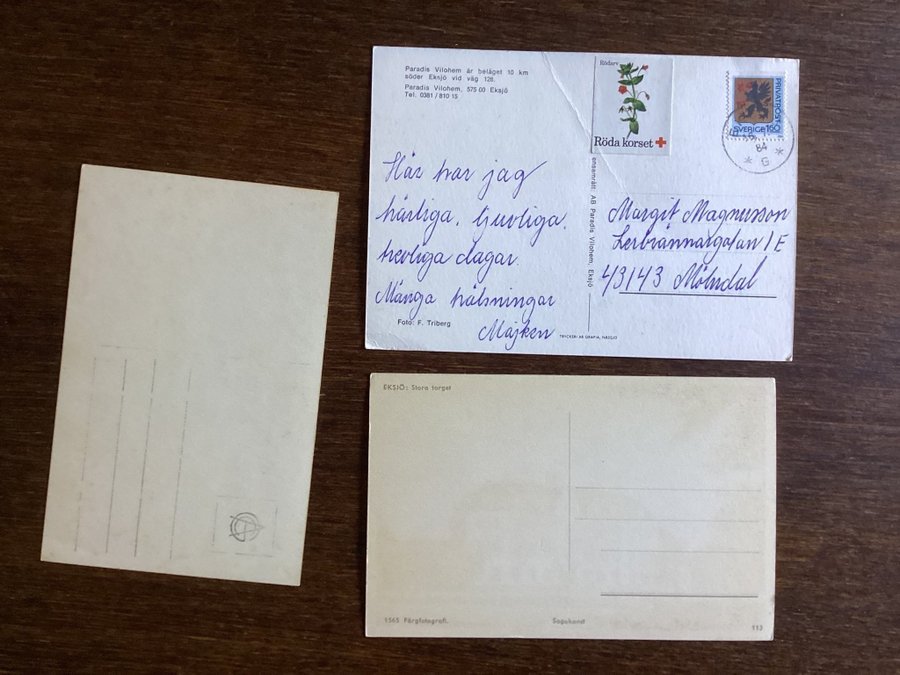 Paradis Vilohem är beläget 10 km
söder Eksjö vid väg 128.
Paradis Vilohem, 575 00 Eksjö
Tel. 0381/810 15
Här har jag
härliga, ljuvliga,
herliga dagar.
Många hälsningar
Majken
Foto: F. Triberg
ensamrätt: AB Paradis Vilohem, Eksjö
TRYCKERI AB GRAFIA, NÄSSJÖ
Rödarv
Röda korset
PRIVATPOST
SVERIGE 160
84
* G *
Margit Magnusson
43143 Mölndal
EKSJÖ: Stora torget
1565 Färgfotografi.
Sagokonst
113